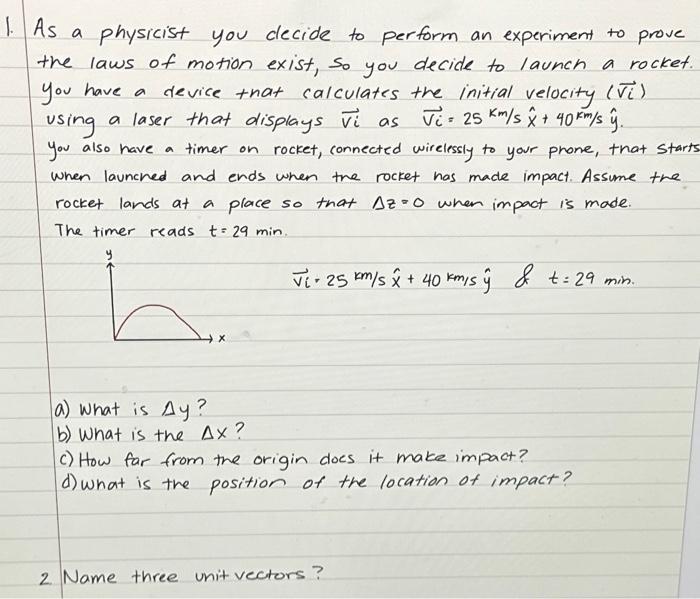 1. As a physicist you decide to perform an experiment to prove
the laws of motion exist, so you decide to launch a rocket.
You have a device that calculates the initial velocity (v⃗i)
using a laser that displays v⃗i as v⃗i = 25 km/s x̂ + 40 km/s ŷ.
You also have a timer on rocket, connected wirelessly to your phone, that starts
when launched and ends when the rocket has made impact. Assume the
rocket lands at a place so that Δz=0 when impact is made.
The timer reads t = 29 min.
y
v⃗i = 25 km/s x̂ + 40 km/s ŷ & t = 29 min.
x
a) What is Δy?
b) What is the Δx?
c) How far from the origin does it make impact?
d) what is the position of the location of impact?
2 Name three unit vectors?